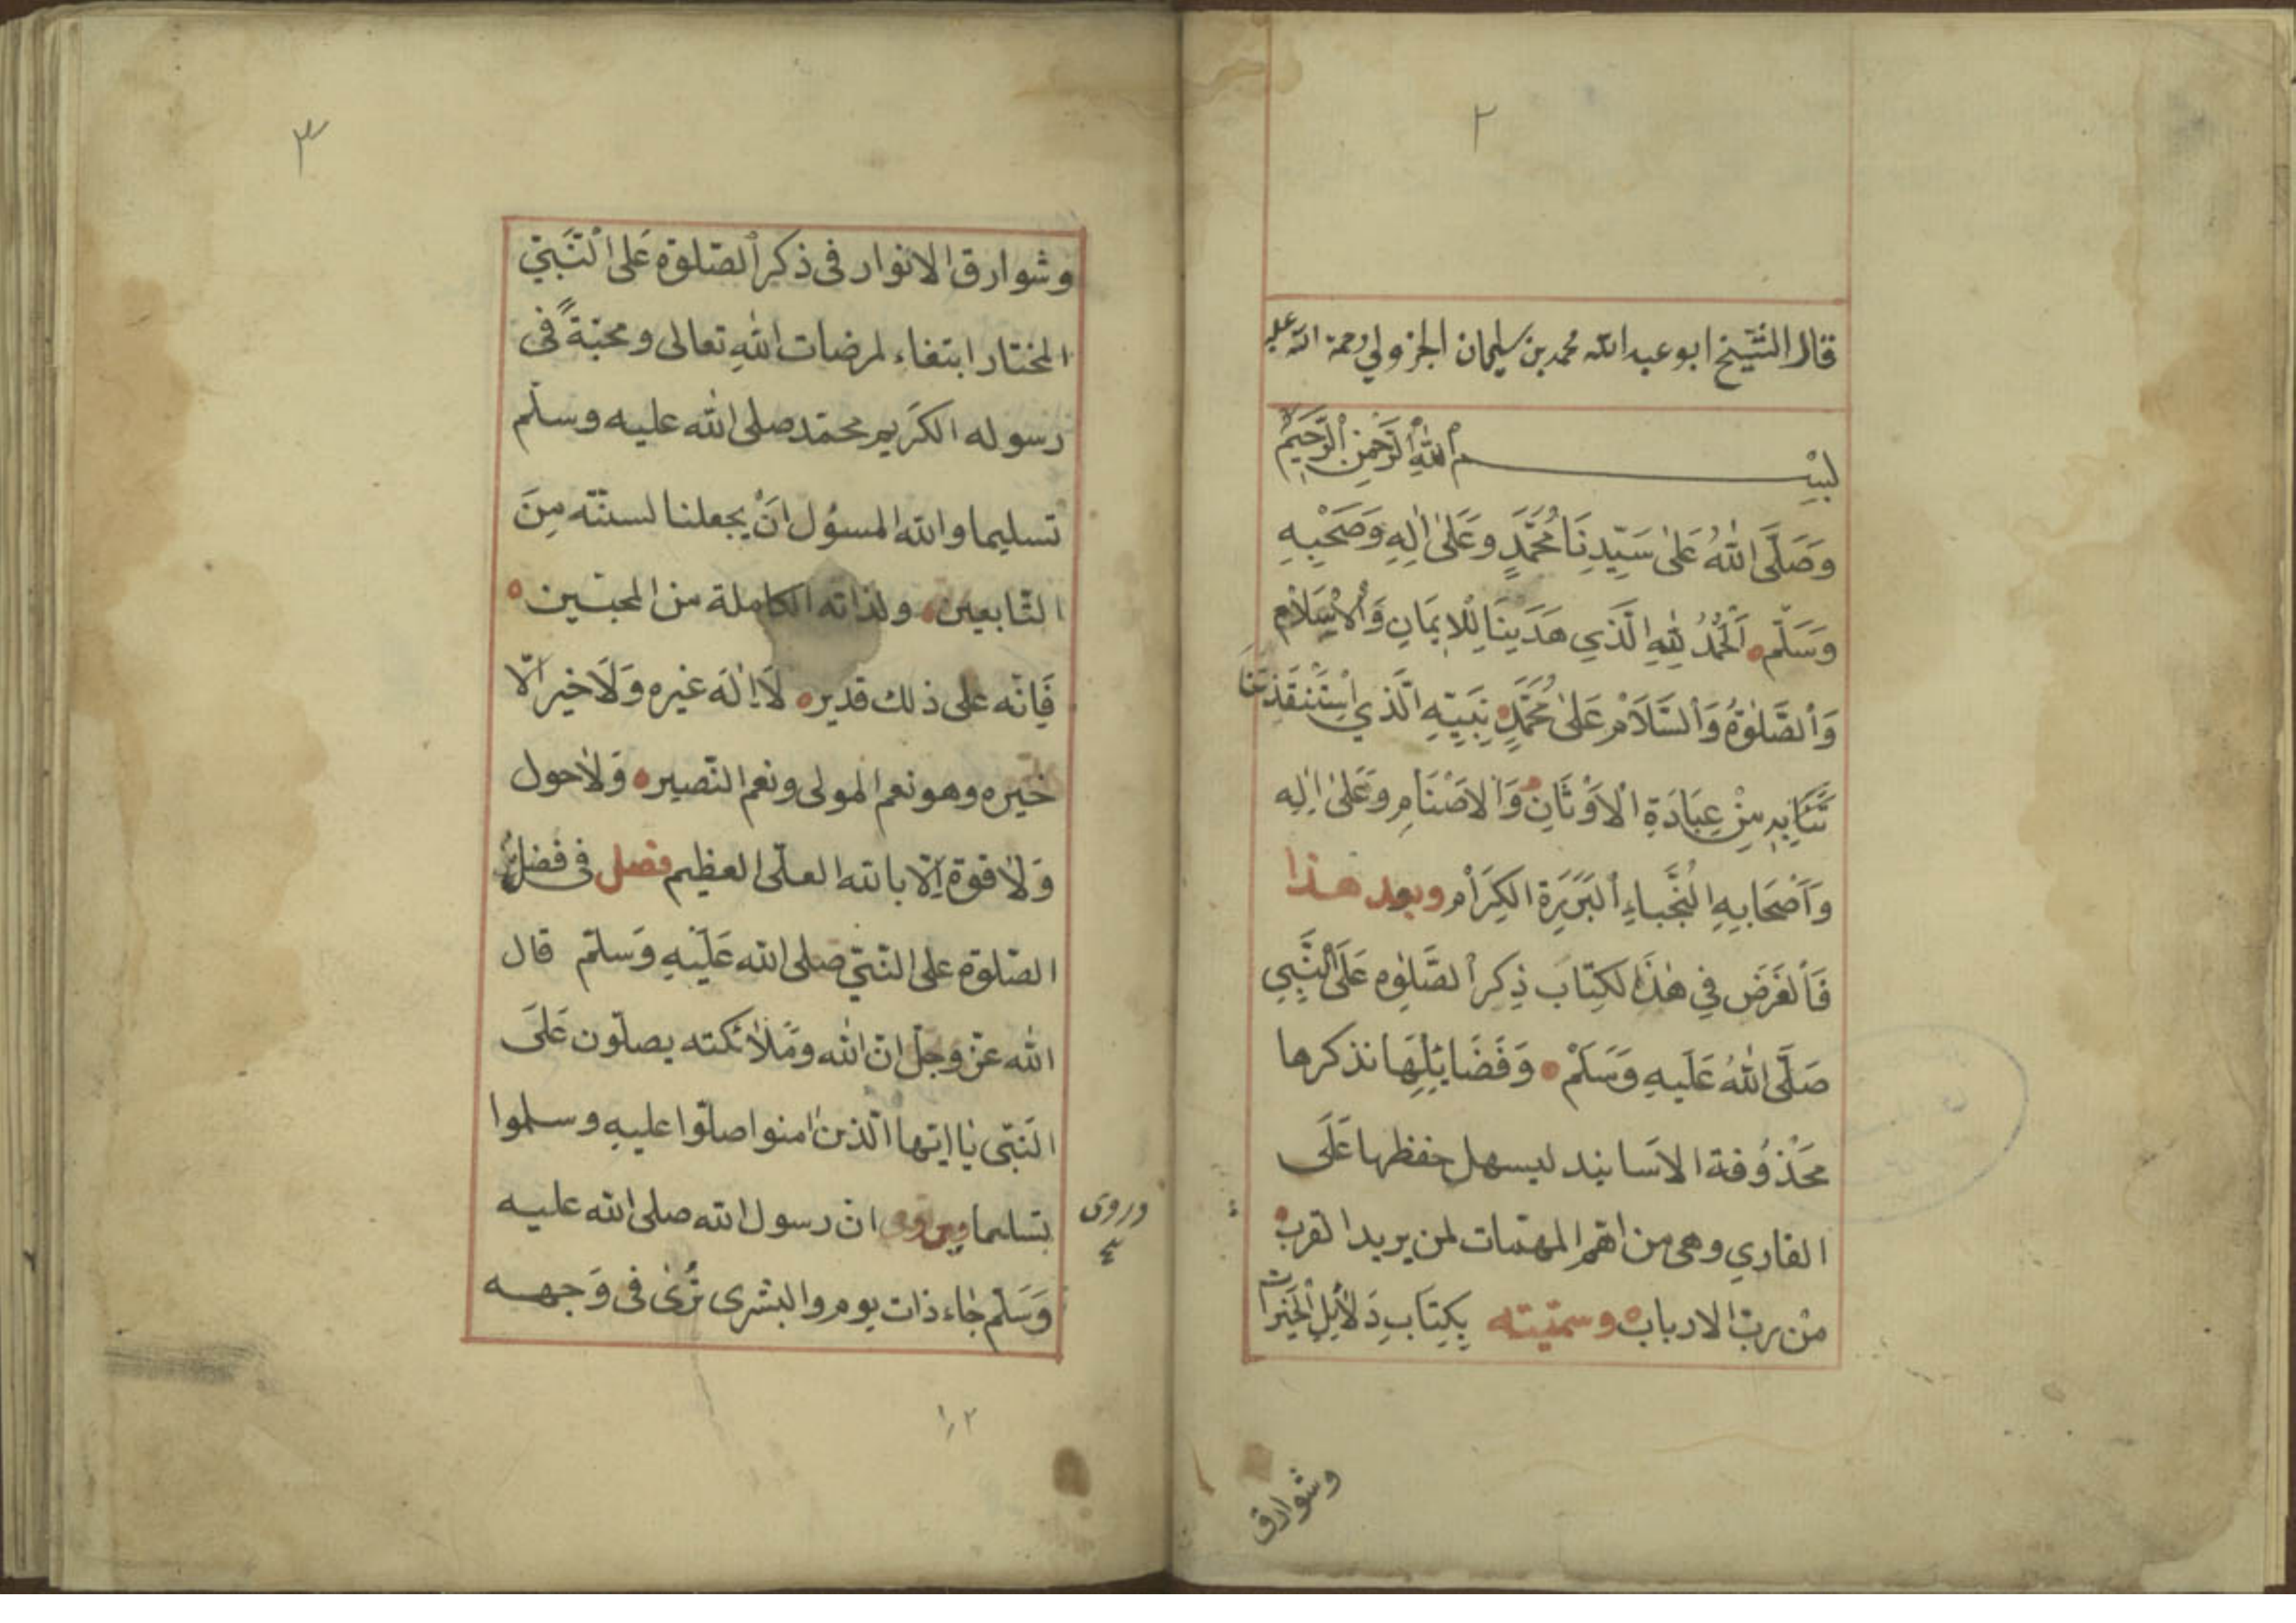 ٢
قال الشيخ ابو عبد الله محمد بن سليمان الجزولي رحمة الله عليه
بِسْــــــــــم اللهِ الرَّحْمٰنِ الرَّحِيمِ
وَصَلَّى اللهُ عَلىٰ سَيِّدِنَا مُحَمَّدٍ وَعَلىٰ اٰلِهِ وَصَحْبِهِ
وَسَلَّم اَلْحَمْدُ لِلهِ الَّذِي هَدَينَا لِلْاِيمَانِ وَالْاِسْلَامِ
وَالصَّلٰوةُ وَالسَّلَامُ عَلىٰ مُحَمَّدٍ نَبِيِّهِ الَّذِي اسْتَنْقَذَنَا
بِهِ مِنْ عِبَادَةِ الْاَوْثَانِ وَالْاَصْنَامِ وَعَلىٰ اٰلِهِ
وَاَصْحَابِهِ النُّجَبَاءِ الْبَرَرَةِ الكِرَامِ وبعد هذا
فَالْغَرَضُ فِي هٰذَا لكِتَابِ ذِكر الصَّلٰوه عَلَى النَّبِي
صَلَّى اللهُ عَلَيهِ وَسَلَّمْ وَفَضَايِلِهَا نذكرها
مَحْذُوفة الاَسانيد ليسهل حفظها عَلَى
القاري وهى من اهم المهمّات لمن يريد القرب
من ربّ الارباب وسمّيته بِكِتَابِ دَلَايِلِ الْخَيْرات
وشوارق
٣
وشوارق الانوار فى ذكر الصّلوة عَلى النَّبيّ
المختار ابتغاء لمرضات اللهِ تعالى ومحبّةً فى
رسوله الكَريم محمّد صلى الله عليه وسلّم
تسليما والله المسؤل اَنْ يجعلنا لسنّته مِنَ
التّابعين ولذاته الكاملة من المحبّين
فَاِنّه على ذلك قدير لَا اِلٰهَ غيره وَلَا خير الّا
خيره وهو نعم المولى ونعم النّصير وَلَا حول
وَلَا قوّة اِلّا بالله العلّى العظيم فصل فى فضل
الصّلوة على النّبيّ صلى الله عَلَيْهِ وَسلّم قال
الله عزّ وجلّ انّ الله ومَلَائكته يصلّون عَلَى
النَبّى يَا ايّها الّذين اٰمنوا صلّوا عليه وسلموا
تسليما ويروى انّ رسول الله صلى الله عليه
وروى
وَسَلّم جَاء ذات يوم والبشرى تُرىٰ فى وَجهه